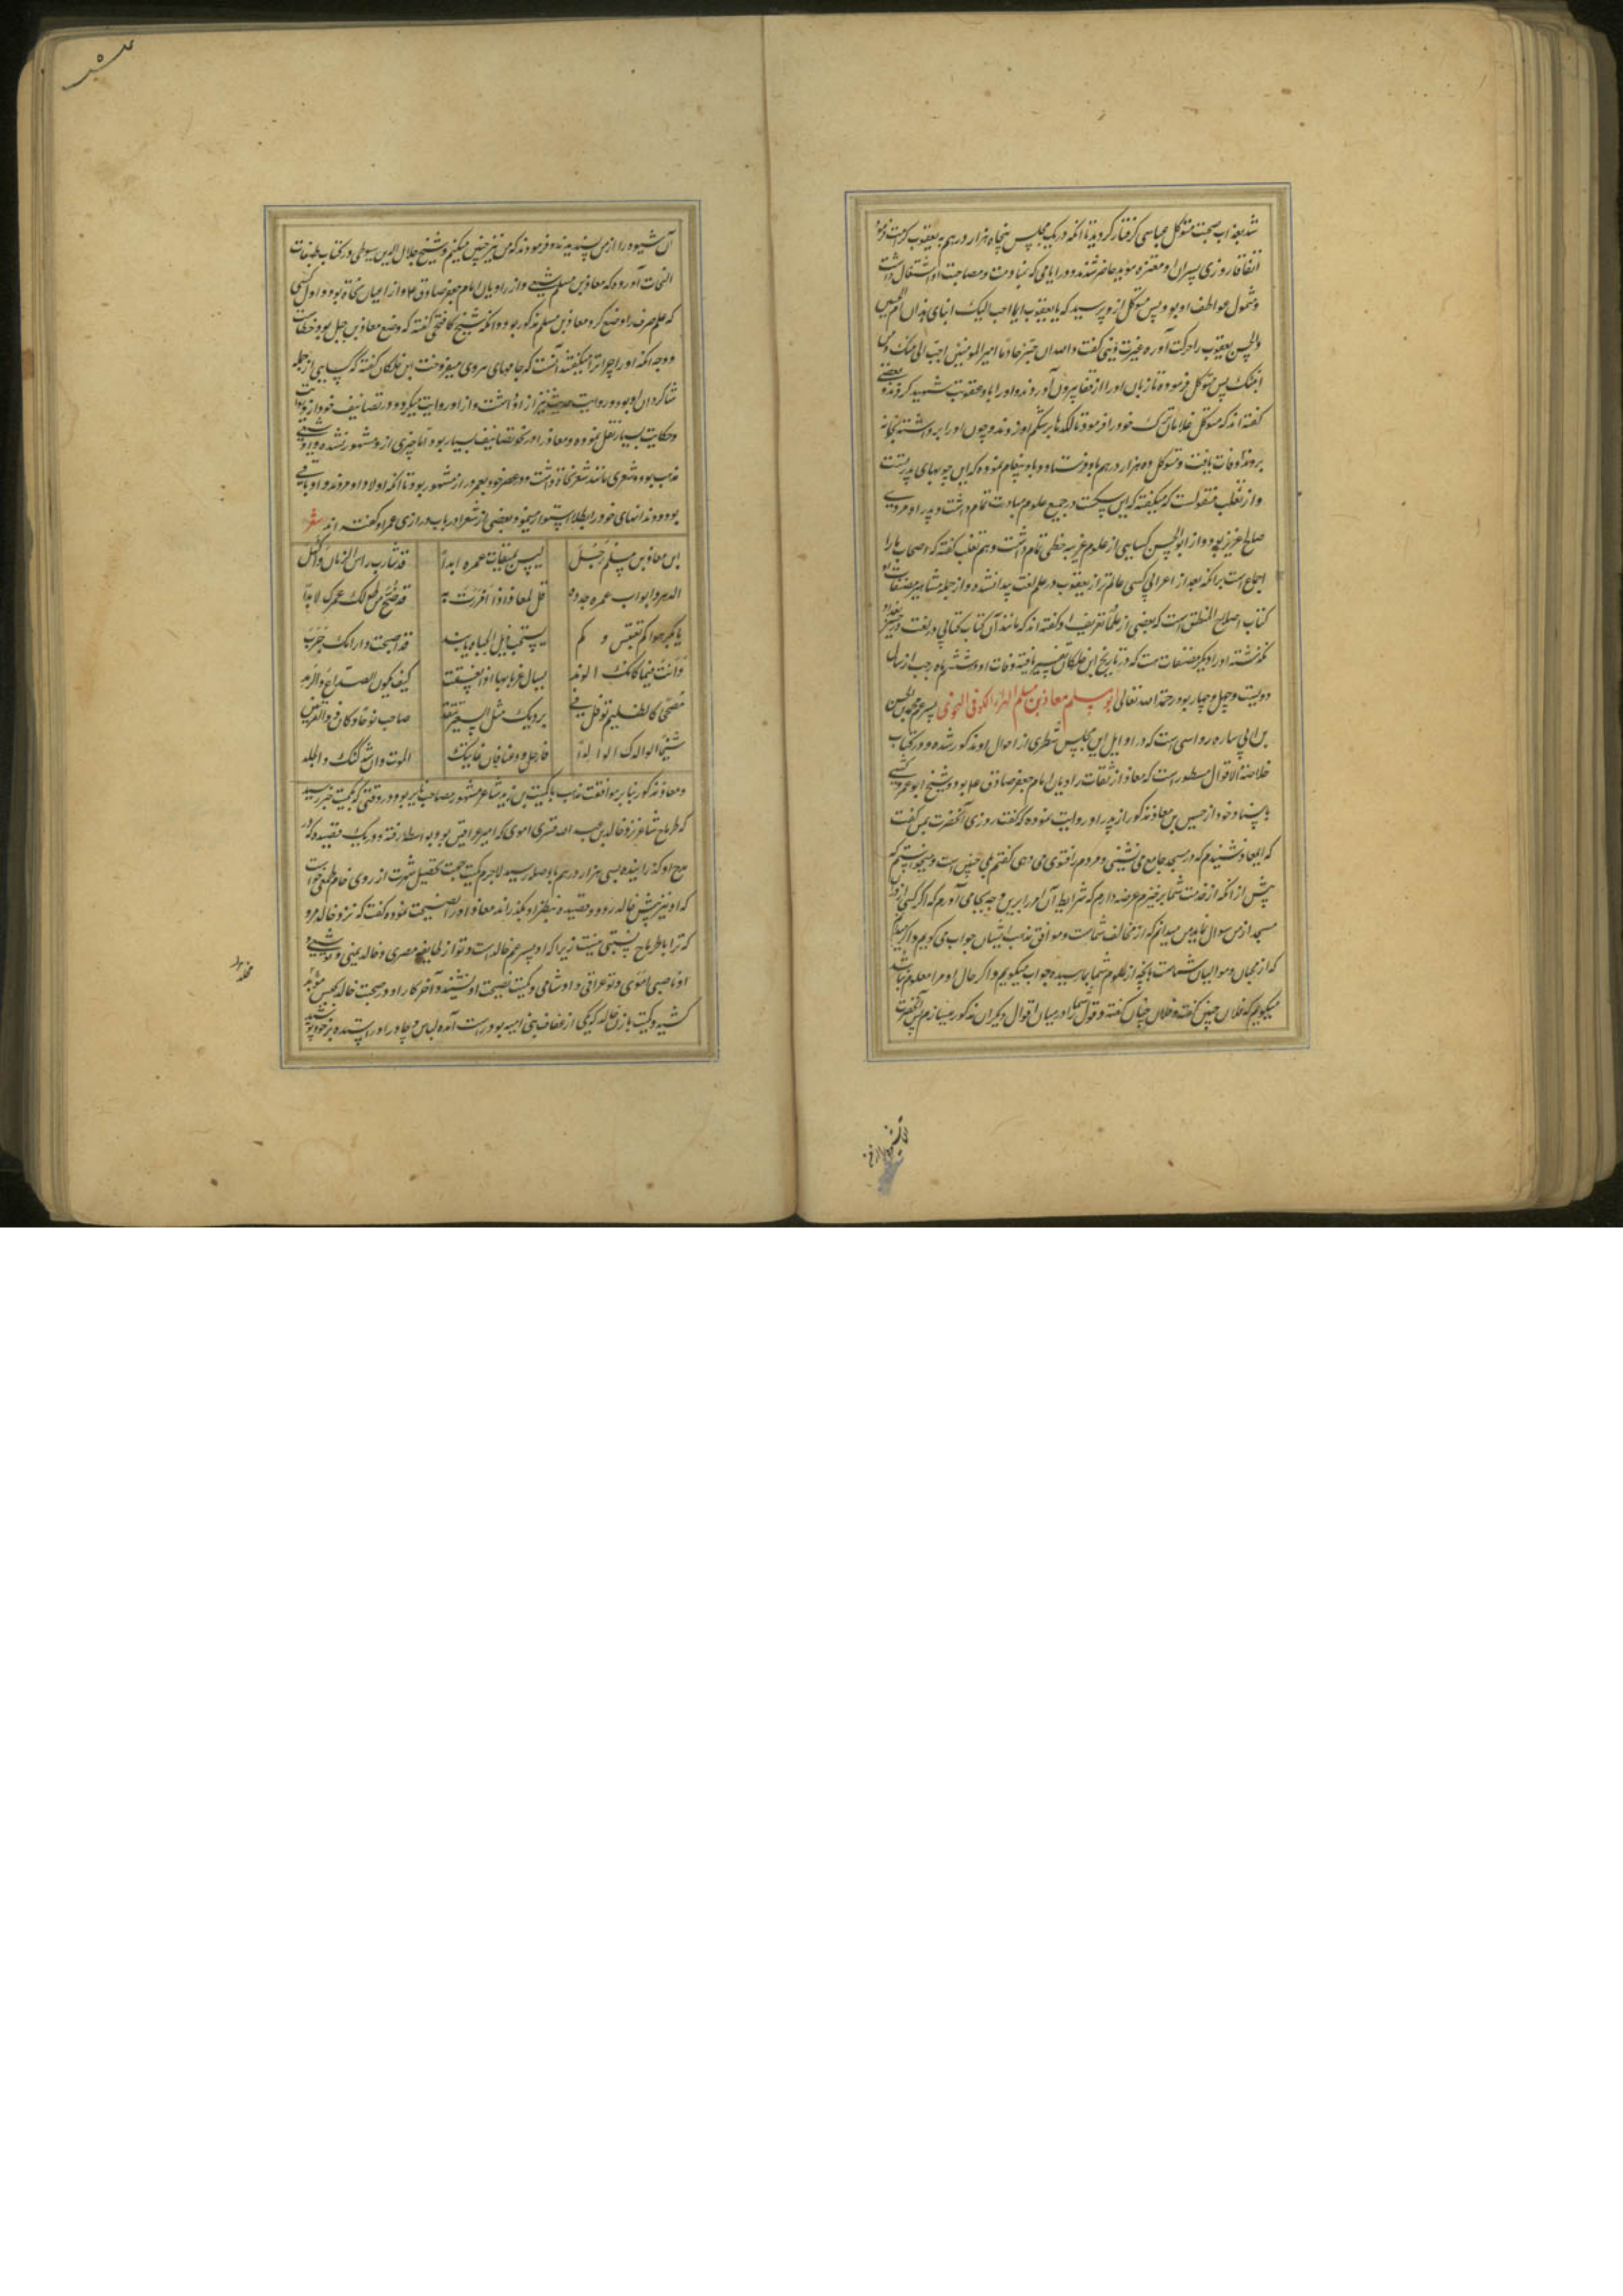 شد بعذاب صحبت متوکل عباسی گرفتار گردید تا آنکه در یک مجلس پنجاه هزار درهم به یعقوب کرامت فرمود
اتفاقا روزی پسران او معتز و مؤید حاضر شدند و در ایامی که بمنادمت و مصاحبت او اشتغال داشت
و شمول عواطف او بود پس متوکل ازو پرسید که یا یعقوب ایما احب الیک ابنای هذان ام الحسن
والحسین یعقوب را حرکت آورده غیرت دینی گفت والله ان قنبر خادم امیرالمومنین احب الی منک و من
ابنیک پس متوکل فرمود تا زبان او را از قفا بیرون آوردند و او را باد عقوبت شهید کردند و بعضی
گفته اند که متوکل غلامان ترک خود را فرمود تا لگدها بر شکم او زدند و چون او را برداشته بخانه
بردند وفات یافت و متوکل ده هزار درهم باو فرستاد و باو پیغام نموده که این خونبهای پدر تست
و از ثعلب منقولست که میگفته که ابن سکیت در جمیع علوم مهارت تمام داشت و پدر او مردی
صالح عزیز بود و از ابوالحسن کسایی از علوم غریبه حظی تمام داشت و هم ثعلب گفته که اصحاب ما را
اجماع است بر آنکه بعد از اعرابی کسی عالم تر از یعقوب در علم لغت پیدا نشده و از جمله مشاهیر مصنفات او
کتاب اصلاح المنطق است که بعضی از علما تعریف او گفته اند که مانند آن کتاب کتابی در لغت در جسر بغداد
نگذشته او را دیگر مصنفات هست که در تاریخ ابن خلکان تفسیر یافته وفات او در ششم ماه رجب از سال
دویست و چهل و چهار بود رحمة الله تعالی ابو مسلم معاذ بن مسلم الهراء الکوفی النحوی پسر عم محمد بن الحسن
بن ابی ساره رواسی است که در اوایل این مجلس شطری از احوال او مذکور شده و در کتاب
خلاصة الاقوال مسطور است که معاذ از ثقات راویان امام جعفر صادق ع بود و شیخ ابو عمرو کشی
باسناد خود از حسین بن معاذ مذکور از پدر او روایت نموده که گفت روزی آنحضرت بمن گفت
که ای معاذ شنیدم که در مسجد جامع می نشینی و مردم را فتوی می دهی گفتم بلی چنین است و میخواستم که
پیش از آنکه از خدمت شما برخیزم عرضه دارم که شرایط آن امر را برین وجه بجا می آورم که اگر کسی از اهل
مسجد از من سوال نماید من میدانم که از مخالف شماست و موافق مذهب ایشان جواب می گویم و اگر میدانم
که از محبان و موالیان شماست بآنچه از علوم شما بما رسیده جواب میگویم و اگر حال او مرا معلوم نباشد
میگویم که فلان چنین گفته و فلان چنان گفته و قول شما را در میان اقوال دیگران مذکور میسازم آنحضرت
آن شیوه را از من پسندیدند و فرمودند که من نیز چنین میکنم و شیخ جلال الدین سیوطی در کتاب طبقات
النحات آورده که معاذ بن مسلم شیعی و از راویان امام جعفر صادق ع و از اعیان نحاة بود و اول کسی
که علم صرف را وضع کرد معاذ بن مسلم مذکور بود و آنکه شیخ کافیجی گفته که وضع معاذ بن جبل بود خطاست
و وجه آنکه او را هرا میگفتند آنست که جامهای هروی میفروخت ابن خلکان گفته که کسایی از جمله
شاگردان او بود و روایت حدیث نیز ازو داشت و از او روایت میکرد و در تصانیف خود ازو روایت
و حکایت بسیار نقل نموده و معاذ را در نحو تصانیف بسیار بود اما چیزی ازو مشهور نشده و او شیعی
مذهب بود و شعری مانند شعر نحاة داشت و در عصر خود بعمر دراز مشهور بود تا آنکه اولاد او مردند و او باقی
بود و دندانهای خود را بطلا استوار مینمود و بعضی از شعرا در باب درازی عمر او گفته اند شعر
ان معاذ بن مسلم رجل لیس لمیقات عمره ابدا قد شاب راس الزمان واکتهل
الدهر و اثواب عمره جدد قل لمعاذ اذا مررت به قد ضج من طول عمرک الابد
یا بکر حوا کم تعیش و کم یستحب ذیل الحیاة یا لبد قد اصبحت دار آدم خربت
و انت فیها کانک الوتد یسال غربانها اذا نعبت کیف یکون الصداع والرمد
مصححا کالظلیم ترفل فی بردیک مثل السعیر تتقد صاحب نوحا و کان ذوالقرنین
شیخا لوالدک الولدا فارحل ودعنا فان غایتک الموت وان شدّ رکنک الجلد
و معاذ مذکور بنابر موافقت مذهب با کمیت بن زید شاعر مشهور مصاحب می بود و در وقتی که بکمیت خبر رسید
که طرماح شاعر نزد خالد بن عبدالله قسری اموی که امیر عراقین بود بواسطه رفته و در یک قصیده که در
مدح او گذرانیده بسی هزار درهم باو صله رسیده لاجرم کمیت جهت تحصیل شهرت از روی خام طمعی خواست
که او نیز پیش خالد رود و قصیده بنظر او بگذراند معاذ او را نصیحت نموده گفت که نزد خالد مرو
که ترا با طرماح نسبتی نیست زیرا که او پسر عم خالد است و تو از طایفه مضری و خالد یمنی و تو شیعی و
او ناصبی اموی و تو عراقی و او شامی و کمیت نصیحت او نشنید و آخر کار او در صحبت خالد بحبس مؤبد
کشید و کمیت با زن خالد که یکی از عفایف بنی امیه بود راست آمده لباس و چادر او را بستده بر خود پوشید